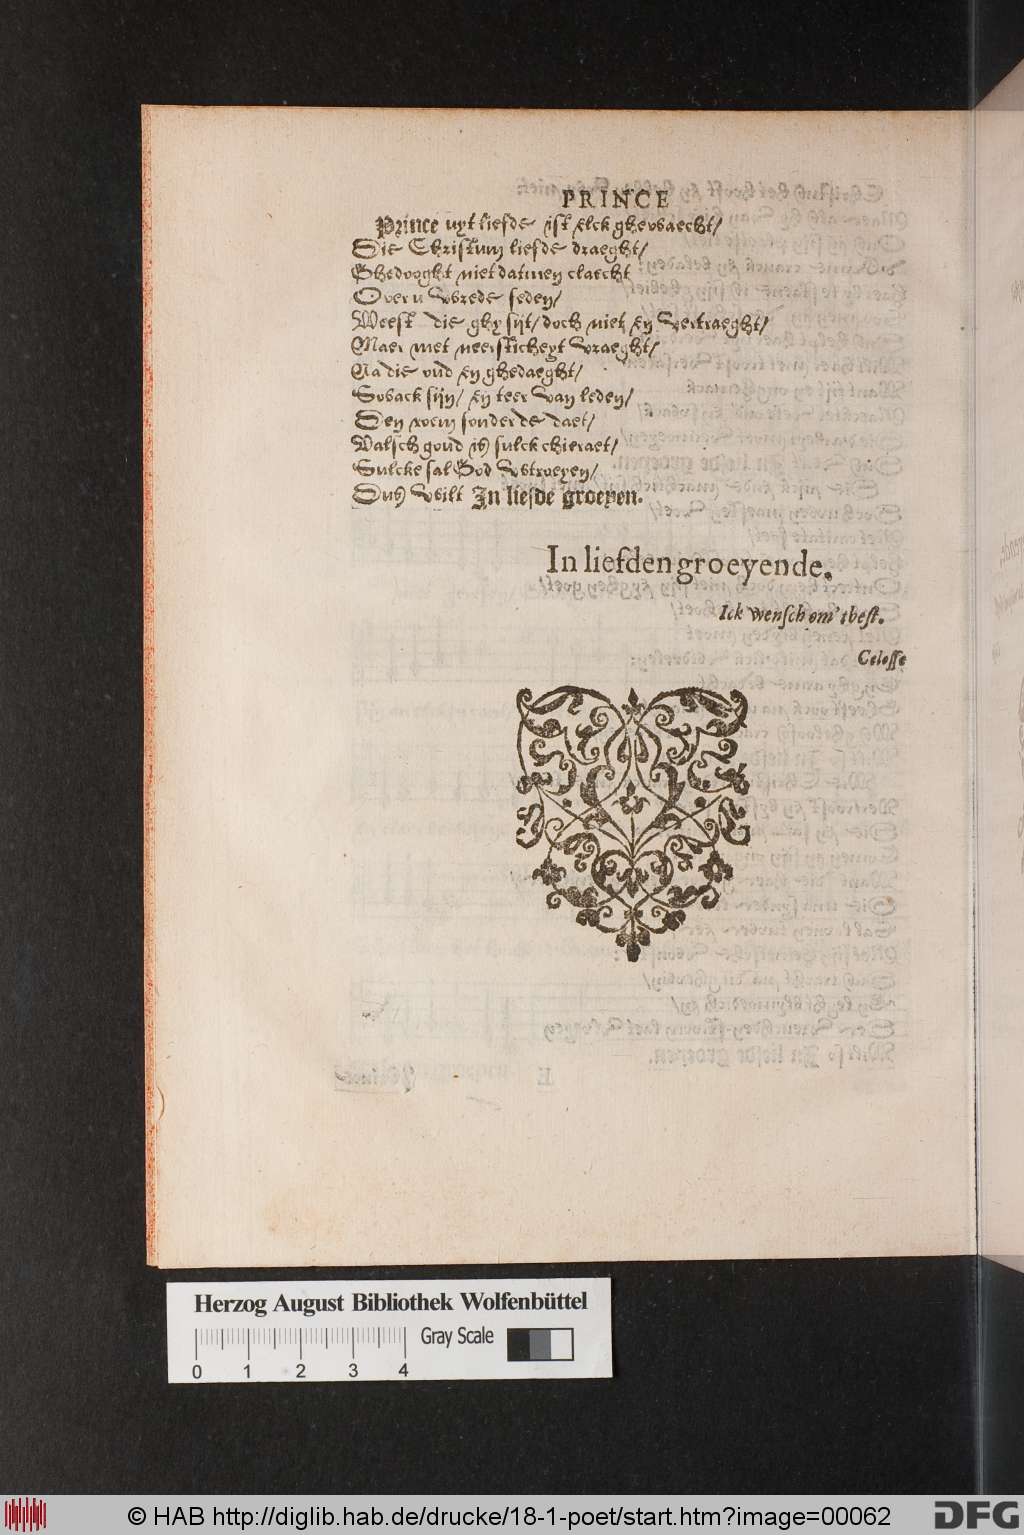 PRINCE
Prince uyt liefde ist elck ghewaecht/
Die Christum liefde draeght/
Ghedooght niet datmen claecht
Over u wrede seden/
Weest die ghy sijt/ doch niet en vertraeght/
Maer met neersticheyt vraeght/
Na die oud en ghedaeght/
Swack sijn/ en teer van leden/
Den roem sonder de daet/
Valsch goud is sulck chieraet/
Sulcke sal God wtroeyen/
Dus wilt In liefde groeyen.
In liefden groeyende.
Ick wensch om' tbest.
Celosse
Herzog August Bibliothek Wolfenbüttel
Gray Scale
0 1 2 3 4
© HAB http://diglib.hab.de/drucke/18-1-poet/start.htm?image=00062
DFG